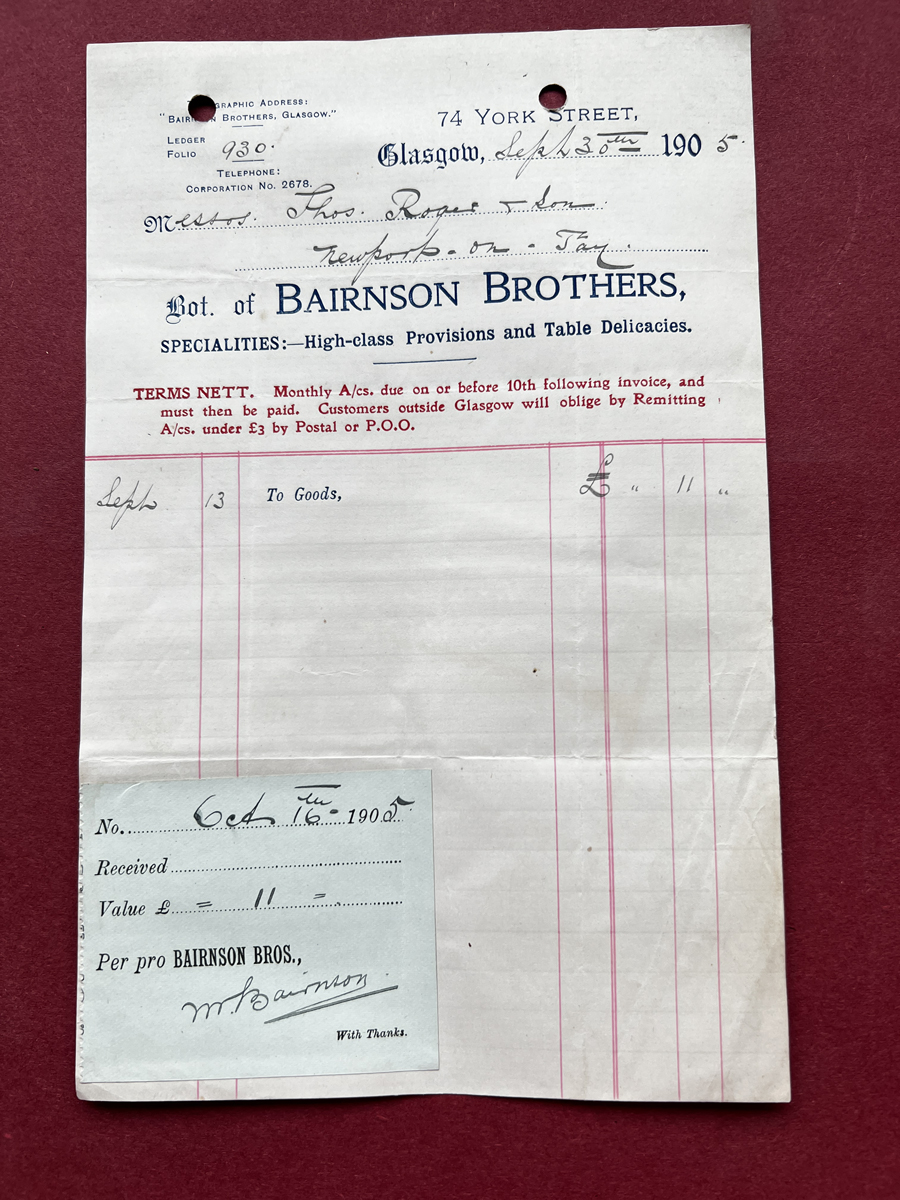 GRAPHIC ADDRESS:
"BAIRNSON BROTHERS, GLASGOW."
LEDGER
FOLIO 930.
TELEPHONE:
CORPORATION No. 2678.
74 YORK STREET,
Glasgow, Sept 30th 1905.
Messrs. Thos. Roger & Son
Newport-on-Tay.
Bot. of BAIRNSON BROTHERS,
SPECIALITIES:—High-class Provisions and Table Delicacies.
TERMS NETT. Monthly A/cs. due on or before 10th following invoice, and
must then be paid. Customers outside Glasgow will oblige by Remitting
A/cs. under £3 by Postal or P.O.O.
Sept 13 To Goods, £ " 11 "
No. Oct 16th 1905
Received
Value £ = 11 =
Per pro BAIRNSON BROS.,
Wm. Bairnson
With Thanks.